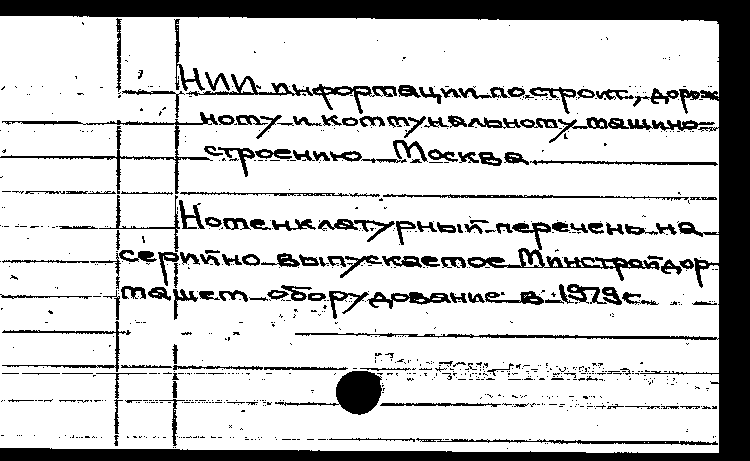 НИИ информации по строит., дорож
ному и коммунальному машино-
строению. Москва.
Номенклатурный перечень на
серийно выпускаемое Минстройдор
машем оборудование в 1979г.